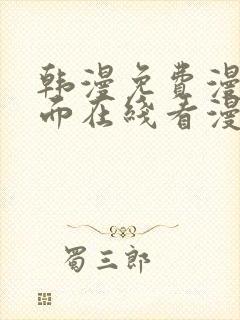 韩漫免费漫
而在线看漫
蜀三郎